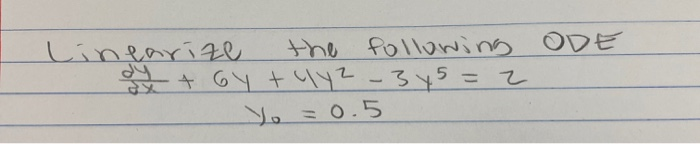 Linearize the following ODE
dy/dx + 6y + 4y² - 3y⁵ = 2
y₀ = 0.5